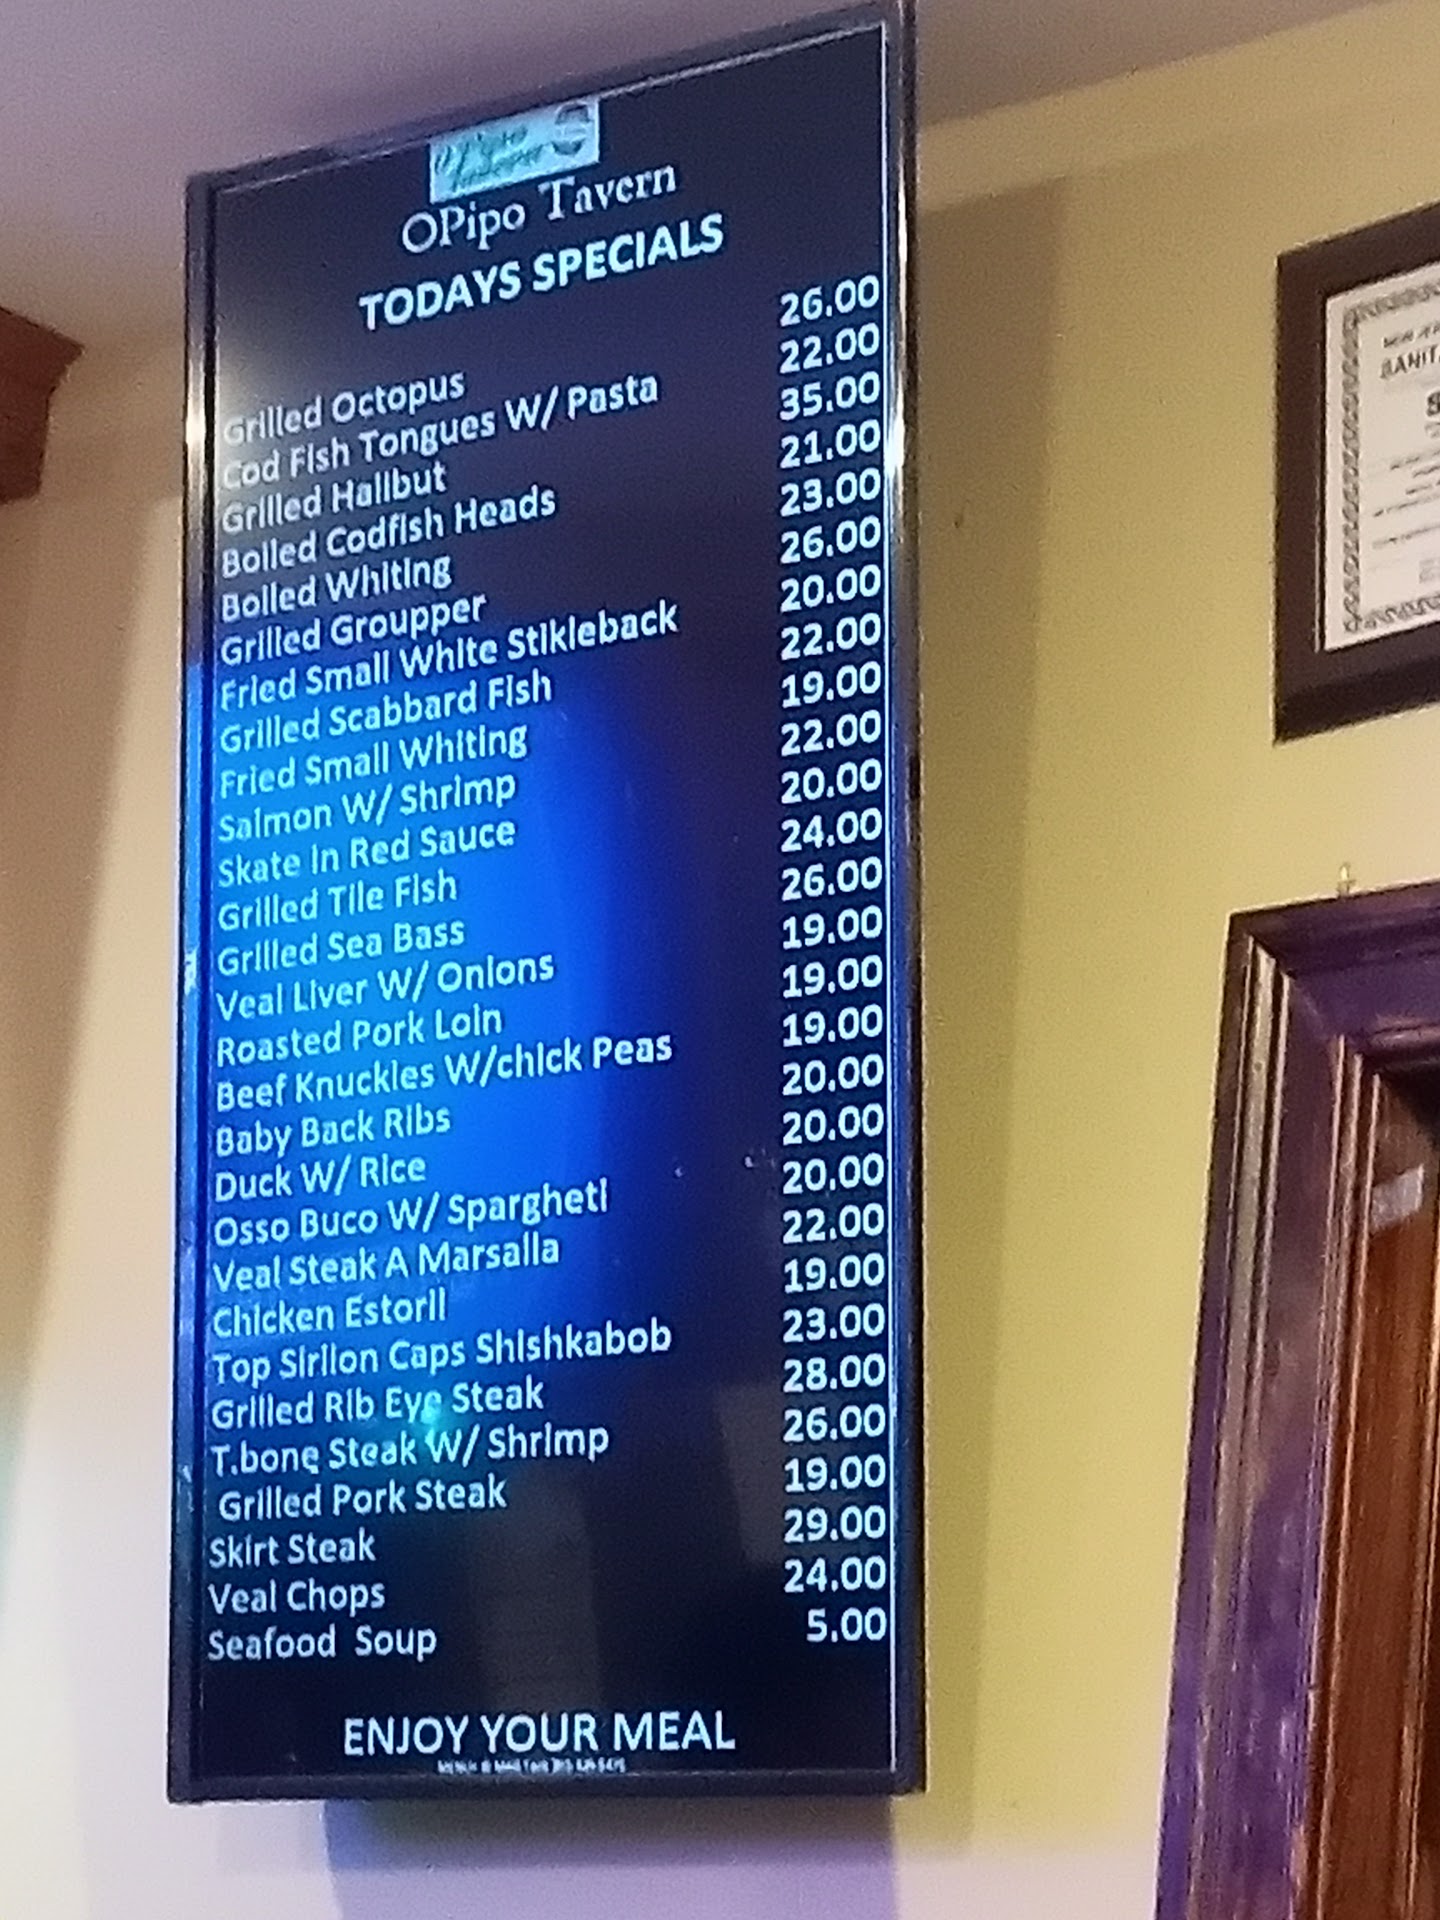 OPipo Tavern
TODAYS SPECIALS
Grilled Octopus 26.00
Cod Fish Tongues W/ Pasta 22.00
Grilled Halibut 35.00
Boiled Codfish Heads 21.00
Boiled Whiting 23.00
Grilled Groupper 26.00
Fried Small White Stikleback 20.00
Grilled Scabbard Fish 22.00
Fried Small Whiting 19.00
Salmon W/ Shrimp 22.00
Skate In Red Sauce 20.00
Grilled Tile Fish 24.00
Grilled Sea Bass 26.00
Veal Liver W/ Onions 19.00
Roasted Pork Loin 19.00
Beef Knuckles W/chick Peas 19.00
Baby Back Ribs 20.00
Duck W/ Rice 20.00
Osso Buco W/ Spargheti 20.00
Veal Steak A Marsalla 22.00
Chicken Estoril 19.00
Top Sirilon Caps Shishkabob 23.00
Grilled Rib Eye Steak 28.00
T.bone Steak W/ Shrimp 26.00
Grilled Pork Steak 19.00
Skirt Steak 29.00
Veal Chops 24.00
Seafood Soup 5.00
ENJOY YOUR MEAL